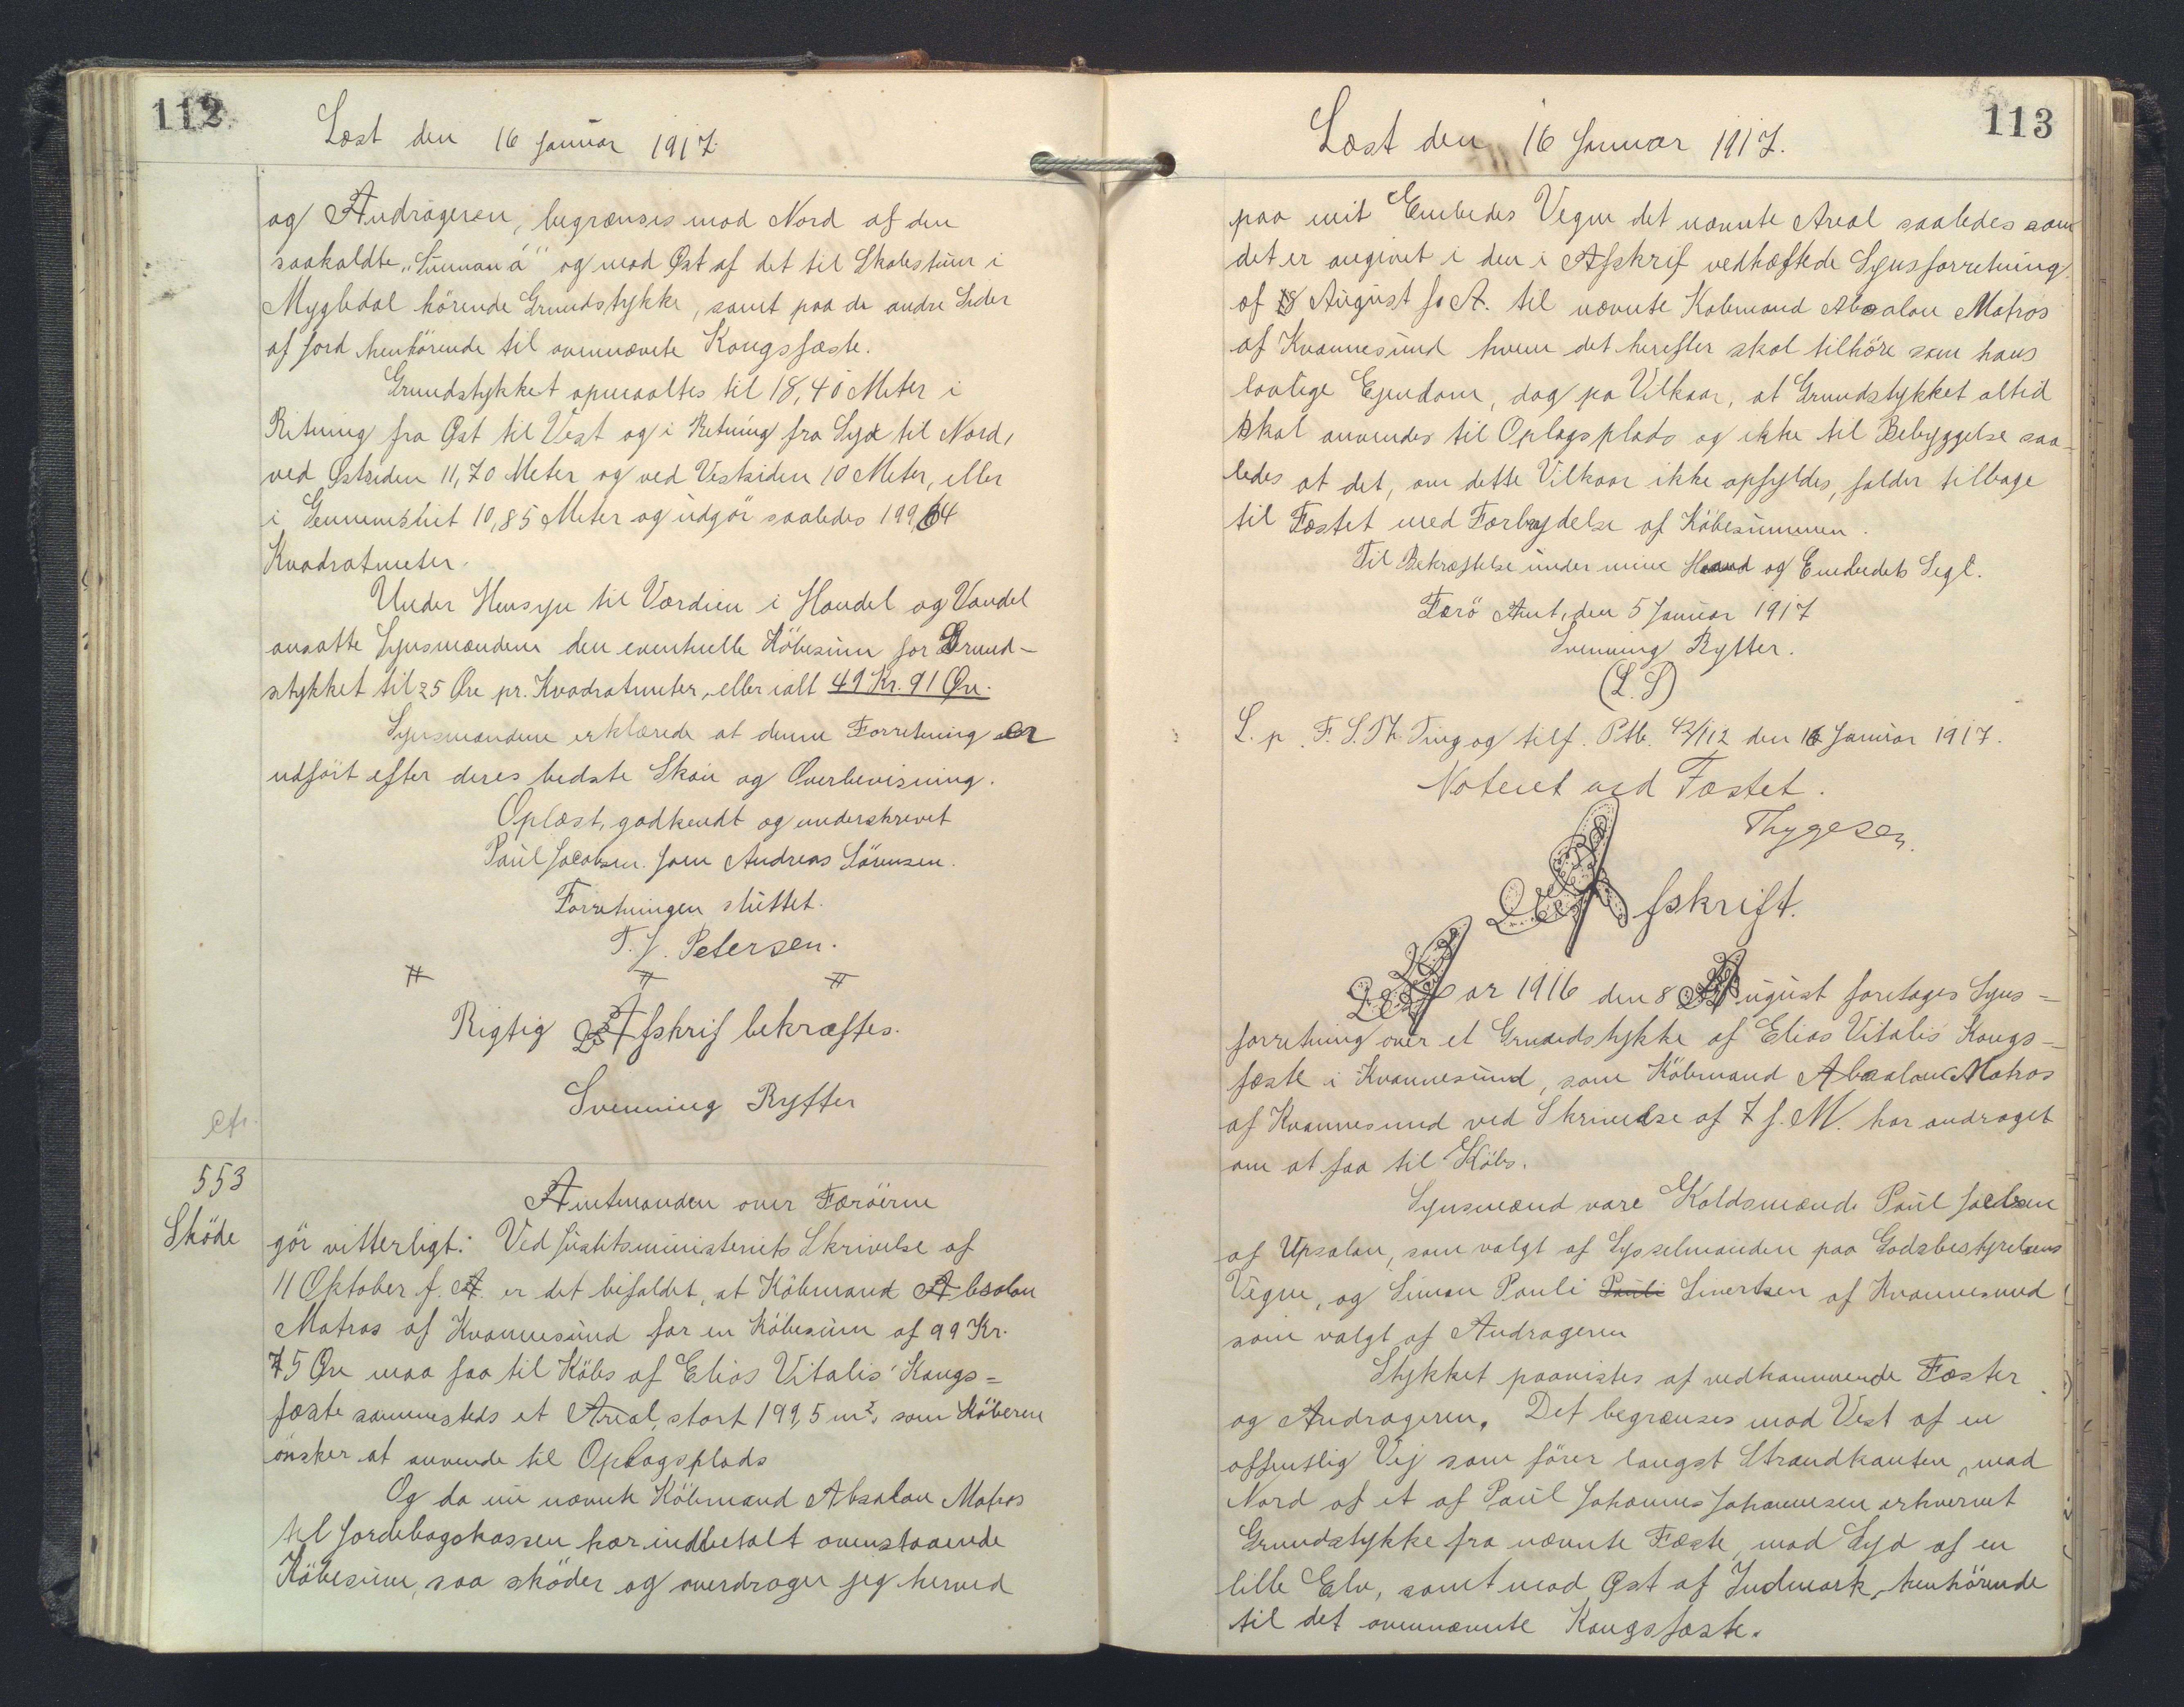 112
Læst den 16 Januar 1917.
og Andrageren, begrænses mod Nord af den
saakaldte „Sunnan á" og mod Øst af det til Skolestuen i
Mygledal hörende Grundstykke, samt paa de andre Sider
af Jord henhörende til ovennævnte Kongsfæste.
Grundstykket opmaaltes til 18,40 Meter i
Retning fra Øst til Vest og i Retning fra Syd til Nord,
ved Østsiden 11,70 Meter og ved Vestsiden 10 Meter, eller
i Gennemsnit 10,85 Meter og udgör saaledes 199,64
Kvadratmeter.
Under Hensyn til Værdien i Handel og Vandel
ansatte Synsmændene den eventuelle Köbesum for Grund-
stykket til 25 Øre pr. Kvadratmeter, eller ialt 49 Kr. 91 Øre.
Synsmændene erklærede at denne Forretning er
udfört efter deres bedste Skön og Overbevisning.
Oplæst, godkendt og underskrevet
Paul Jacobsen. Joen Andreas Sörensen.
Forretningen sluttet.
T. J. Petersen.
Rigtig Afskrif bekræftes.
Svenning Rytter
cfr.
553
Sköde
Amtmanden over Færöerne
gör vitterligt: Ved Justitsministeriets Skrivelse af
11 Oktober f. A. er det bifaldet, at Köbmand Absalon
Matras af Kvannesund for en Köbesum af 99 Kr.
75 Øre maa faa til Köbs af Elias Vitalis' Kongs=
fæste sammesteds et Areal, stort 199,5 m², som Köberen
önsker at anvende til Oplagsplads
Og da nu nævnte Köbmand Absalon Matras
til Jordebogskassen har indbetalt ovenstaaende
Köbesum, saa sköder og overdrager jeg herved
113
Læst den 16 Januar 1917.
paa mit Embedes Vegne det nævnte Areal saaledes som
det er angivet i den i Afskrif vedhæftede Synsforretning
af 8 August f. A. til nævnte Købmand Absalon Matras
af Kvannesund hvem det herefter skal tilhöre som hans
lovlige Ejendom, dog pa Vilkaar, at Grundstykket altid
skal anvendes til Oplagsplads og ikke til Bebyggelse saa-
ledes at det, om dette Vilkaar ikke opfyldes, falder tilbage
til Fæstet med Forbrydelse af Köbesummen.
Til Bekræftelse under min Haand og Embedets Segl.
Færö Amt, den 5 Januar 1917
Svenning Rytter.
(L. S)
L. p. F. S. Th. Ting og tilf. Ptb. 42/112 den 16 Januar 1917.
Noteret ved Fæstet.
Thygesen.
Afskrift.
Aar 1916 den 8 August foretages Syns=
forretning over et Grundstykke af Elias Vitalis' Kongs=
fæste i Kvannesund, som Köbmand Absalon Matras
af Kvannesund ved Skrivelse af 7 f. M. har andraget
om at faa til Köbs.
Synsmænd vare Koldsmænd Paul Jacobsen
af Upsalan, som valgt af Sysselmanden paa Godsbestyrelsens
Vegne, og Simon Pauli Pauli Sivertsen af Kvannesund
som valgt af Andrageren
Stykket paavistes af vedkommende Fæster
og Andrageren. Det begrænses mod Vest af en
offentlig Vej som förer langst Strandkanten, mod
Nord af et af Paul Johannes Johannesen erhvervet
Grundstykke fra nævnte Fæste, mod Syd af en
lille Elv, samt mod Øst af Indmark, henhörende
til det ovennævnte Kongsfæste.